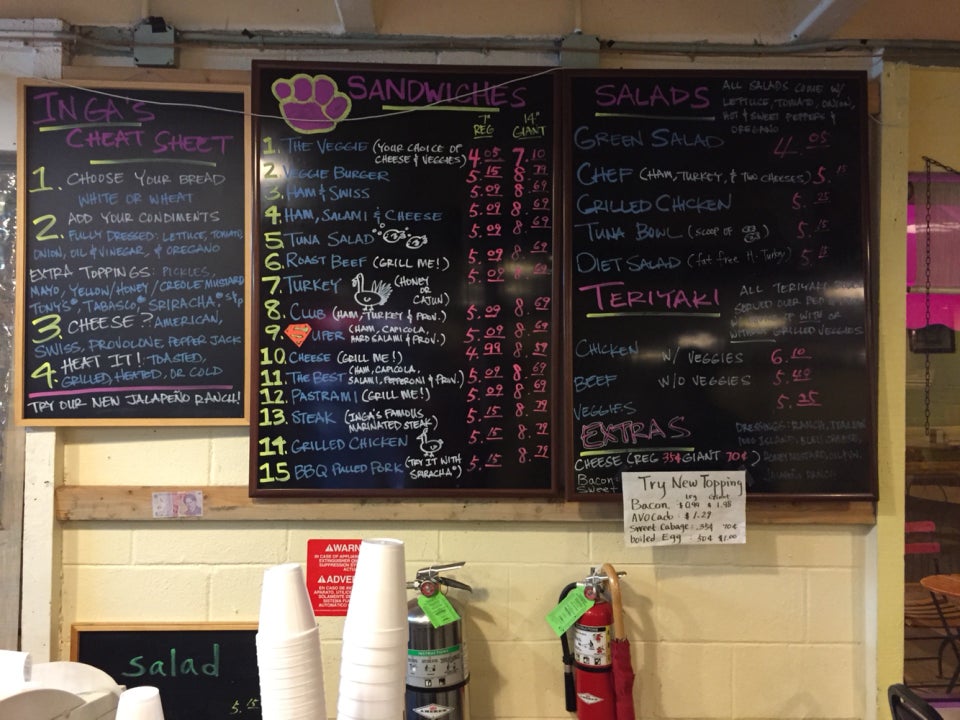 INGA'S
CHEAT SHEET
1. CHOOSE YOUR BREAD
WHITE OR WHEAT
2. ADD YOUR CONDIMENTS
FULLY DRESSED: LETTUCE, TOMATO,
ONION, OIL & VINEGAR, & OREGANO
EXTRA TOPPINGS: PICKLES,
MAYO, YELLOW/HONEY/CREOLE MUSTARD
TONY'S, TABASCO, SRIRACHA, S&P
3. CHEESE? AMERICAN,
SWISS, PROVOLONE, PEPPER JACK
4. HEAT IT! TOASTED,
GRILLED, HEATED, OR COLD
TRY OUR NEW JALAPEÑO RANCH!
SANDWICHES
7" REG 14" GIANT
1. THE VEGGIE (YOUR CHOICE OF CHEESE & VEGGIES) 4.05 7.10
2. VEGGIE BURGER 5.15 8.79
3. HAM & SWISS 5.09 8.69
4. HAM, SALAMI & CHEESE 5.09 8.69
5. TUNA SALAD 5.09 8.69
6. ROAST BEEF (GRILL ME!) 5.09 8.69
7. TURKEY (HONEY OR CAJUN) 5.09 8.69
8. CLUB (HAM, TURKEY & PROV.) 5.09 8.69
9. SUPER (HAM, CAPICOLA, HARD SALAMI & PROV.) 5.09 8.69
10. CHEESE (GRILL ME!) 4.99 8.59
11. THE BEST (HAM, CAPICOLA, SALAMI, PEPPERONI & PROV.) 5.09 8.69
12. PASTRAMI (GRILL ME!) 5.09 8.69
13. STEAK (INGA'S FAMOUS MARINATED STEAK) 5.15 8.79
14. GRILLED CHICKEN 5.15 8.79
15 BBQ PULLED PORK (TRY IT WITH SRIRACHA) 5.15 8.79
SALADS
ALL SALADS COME W/
LETTUCE, TOMATO, ONION,
HOT & SWEET PEPPERS &
OREGANO
GREEN SALAD 4.05
CHEF (HAM, TURKEY, & TWO CHEESES) 5.15
GRILLED CHICKEN 5.25
TUNA BOWL (SCOOP OF) 5.15
DIET SALAD (fat free H. Turkey) 5.
TERIYAKI
ALL TERIYAKI
SERVED OVER
WITH OR
WITHOUT GRILLED VEGGIES
CHICKEN W/ VEGGIES 6.10
BEEF W/O VEGGIES 5.
VEGGIES 5.25
EXTRAS
DRESSINGS: RANCH, ITALIAN
CHEESE (REG 35¢ GIANT 70¢)
Bacon
Sweet
Try New Topping
reg Giant
Bacon. $0.99 $1.98
AVOCado: $1.29
Sweet Cabage: .35¢ 70¢
boiled Egg: .50¢ $1.00
WARN
IN CASE OF APPLIAN
EXTINGUISHER
SUPPRESSION SYSTE
ADVE
EN CASO DE
APARATO, UTILICE
SOLAMENTE
SISTEMA
AUTOMÁTICO
INSTRUCTIONS
AMEREX
salad
5.15